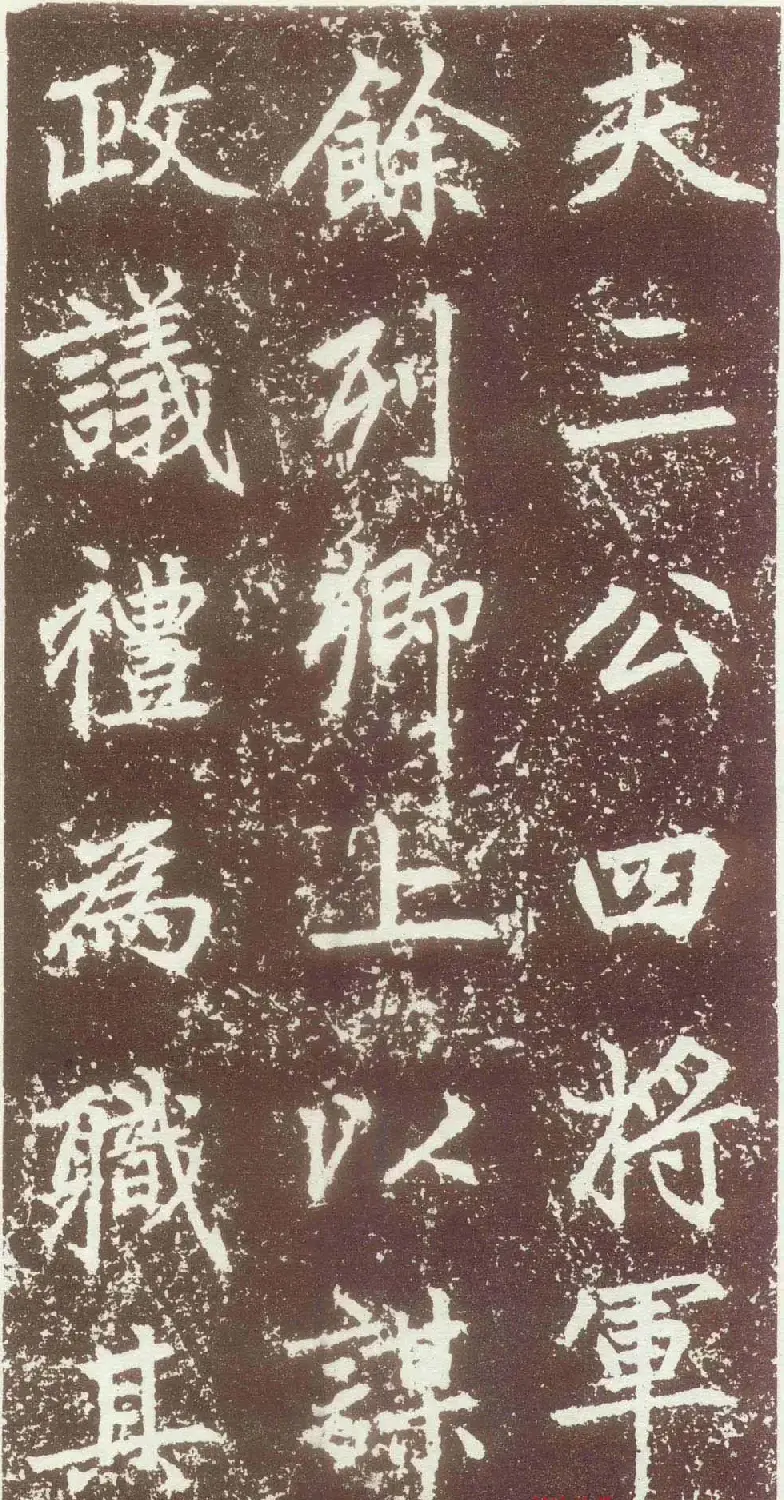 夫三公四將軍
餘列卿上以謀
政議禮為職其